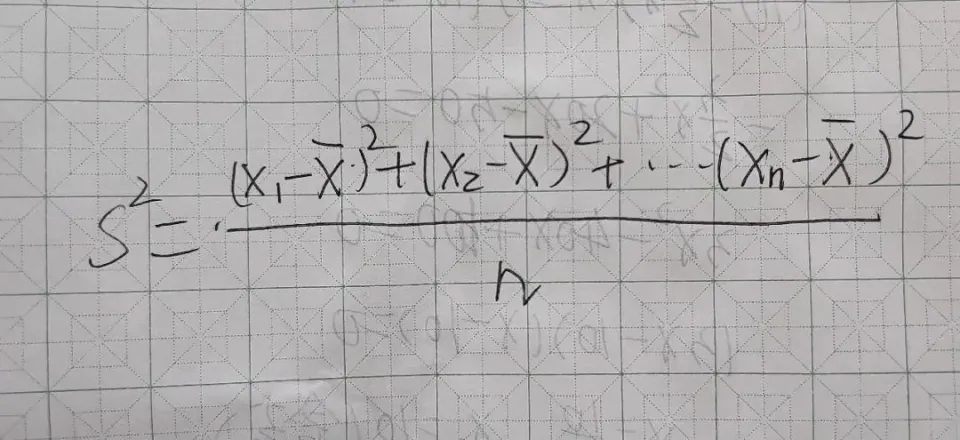 S² = (x₁-x̄)²+(x₂-x̄)²+ ···(xₙ-x̄)²
n